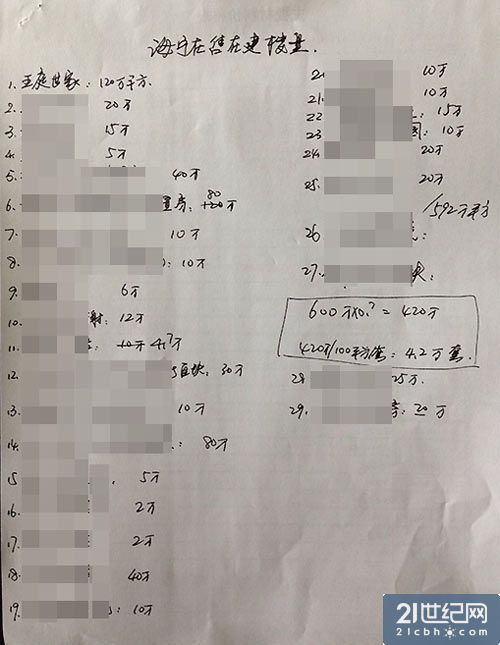 海宁在售在建楼量.
1. 王庭世家: 120万平方.
2. 20万
3. 15万
4. 5万
5. 40万
6. 置房: 80 +20万
7. 10万
8. : 10万
9. 6万
10. 12万
11. : 10万 4.7万
12. 块: 30万
13. 10万
14. : 80万
15 5万
16. 2万
17. 2万
18. 40万
19. : 10万
2 10万
21. 10万
22 : 15万
23 园: 10万
24. 20万
25. 20万
/592万平方
26 :
27. :
600万×0.7 = 420万
420万/100平方/套: 4.2万套.
28 25万.
29. : 20万
21世纪网
21cbh.com